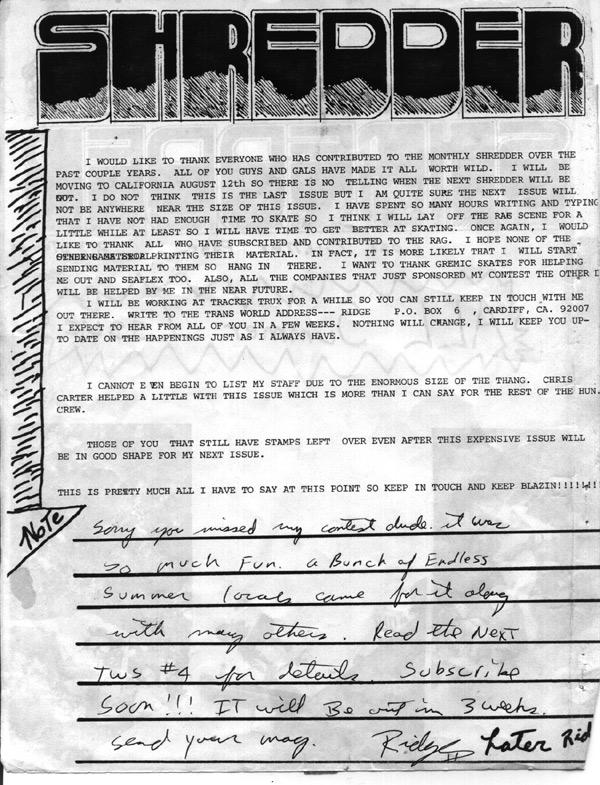 SHREDDER
I WOULD LIKE TO THANK EVERYONE WHO HAS CONTRIBUTED TO THE MONTHLY SHREDDER OVER THE
PAST COUPLE YEARS. ALL OF YOU GUYS AND GALS HAVE MADE IT ALL WORTH WILD. I WILL BE
MOVING TO CALIFORNIA AUGUST 12th SO THERE IS NO TELLING WHEN THE NEXT SHREDDER WILL BE
OUT. I DO NOT THINK THIS IS THE LAST ISSUE BUT I AM QUITE SURE THE NEXT ISSUE WILL
NOT BE ANYWHERE NEAR THE SIZE OF THIS ISSUE. I HAVE SPENT SO MANY HOURS WRITING AND TYPING
THAT I HAVE NOT HAD ENOUGH TIME TO SKATE SO I THINK I WILL LAY OFF THE RAG SCENE FOR A
LITTLE WHILE AT LEAST SO I WILL HAVE TIME TO GET BETTER AT SKATING. ONCE AGAIN, I WOULD
LIKE TO THANK ALL WHO HAVE SUBSCRIBED AND CONTRIBUTED TO THE RAG. I HOPE NONE OF THE
PRINTING THEIR MATERIAL. IN FACT, IT IS MORE LIKELY THAT I WILL START
SENDING MATERIAL TO THEM SO HANG IN THERE. I WANT TO THANK GREMIC SKATES FOR HELPING
ME OUT AND SEAFLEX TOO. ALSO, ALL THE COMPANIES THAT JUST SPONSORED MY CONTEST THE OTHER D
WILL BE HELPED BY ME IN THE NEAR FUTURE.
I WILL BE WORKING AT TRACKER TRUX FOR A WHILE SO YOU CAN STILL KEEP IN TOUCH WITH ME
OUT THERE. WRITE TO THE TRANS WORLD ADDRESS--- RIDGE P.O. BOX 6 , CARDIFF, CA. 92007
I EXPECT TO HEAR FROM ALL OF YOU IN A FEW WEEKS. NOTHING WILL CHANGE, I WILL KEEP YOU UP-
TO DATE ON THE HAPPENINGS JUST AS I ALWAYS HAVE.
I CANNOT EVEN BEGIN TO LIST MY STAFF DUE TO THE ENORMOUS SIZE OF THE THANG. CHRIS
CARTER HELPED A LITTLE WITH THIS ISSUE WHICH IS MORE THAN I CAN SAY FOR THE REST OF THE HUN.
CREW.
THOSE OF YOU THAT STILL HAVE STAMPS LEFT OVER EVEN AFTER THIS EXPENSIVE ISSUE WILL
BE IN GOOD SHAPE FOR MY NEXT ISSUE.
THIS IS PRETTY MUCH ALL I HAVE TO SAY AT THIS POINT SO KEEP IN TOUCH AND KEEP BLAZIN!!!!!!!
Note
Sorry you missed my contest dude. it was
so much Fun. a Bunch of Endless
Summer locals came for it along
with many others. Read the NexT
TWS #4 for details. Subscribe
Soon!!! IT will Be out in 3 weeks.
send your mag. Ridge II Later